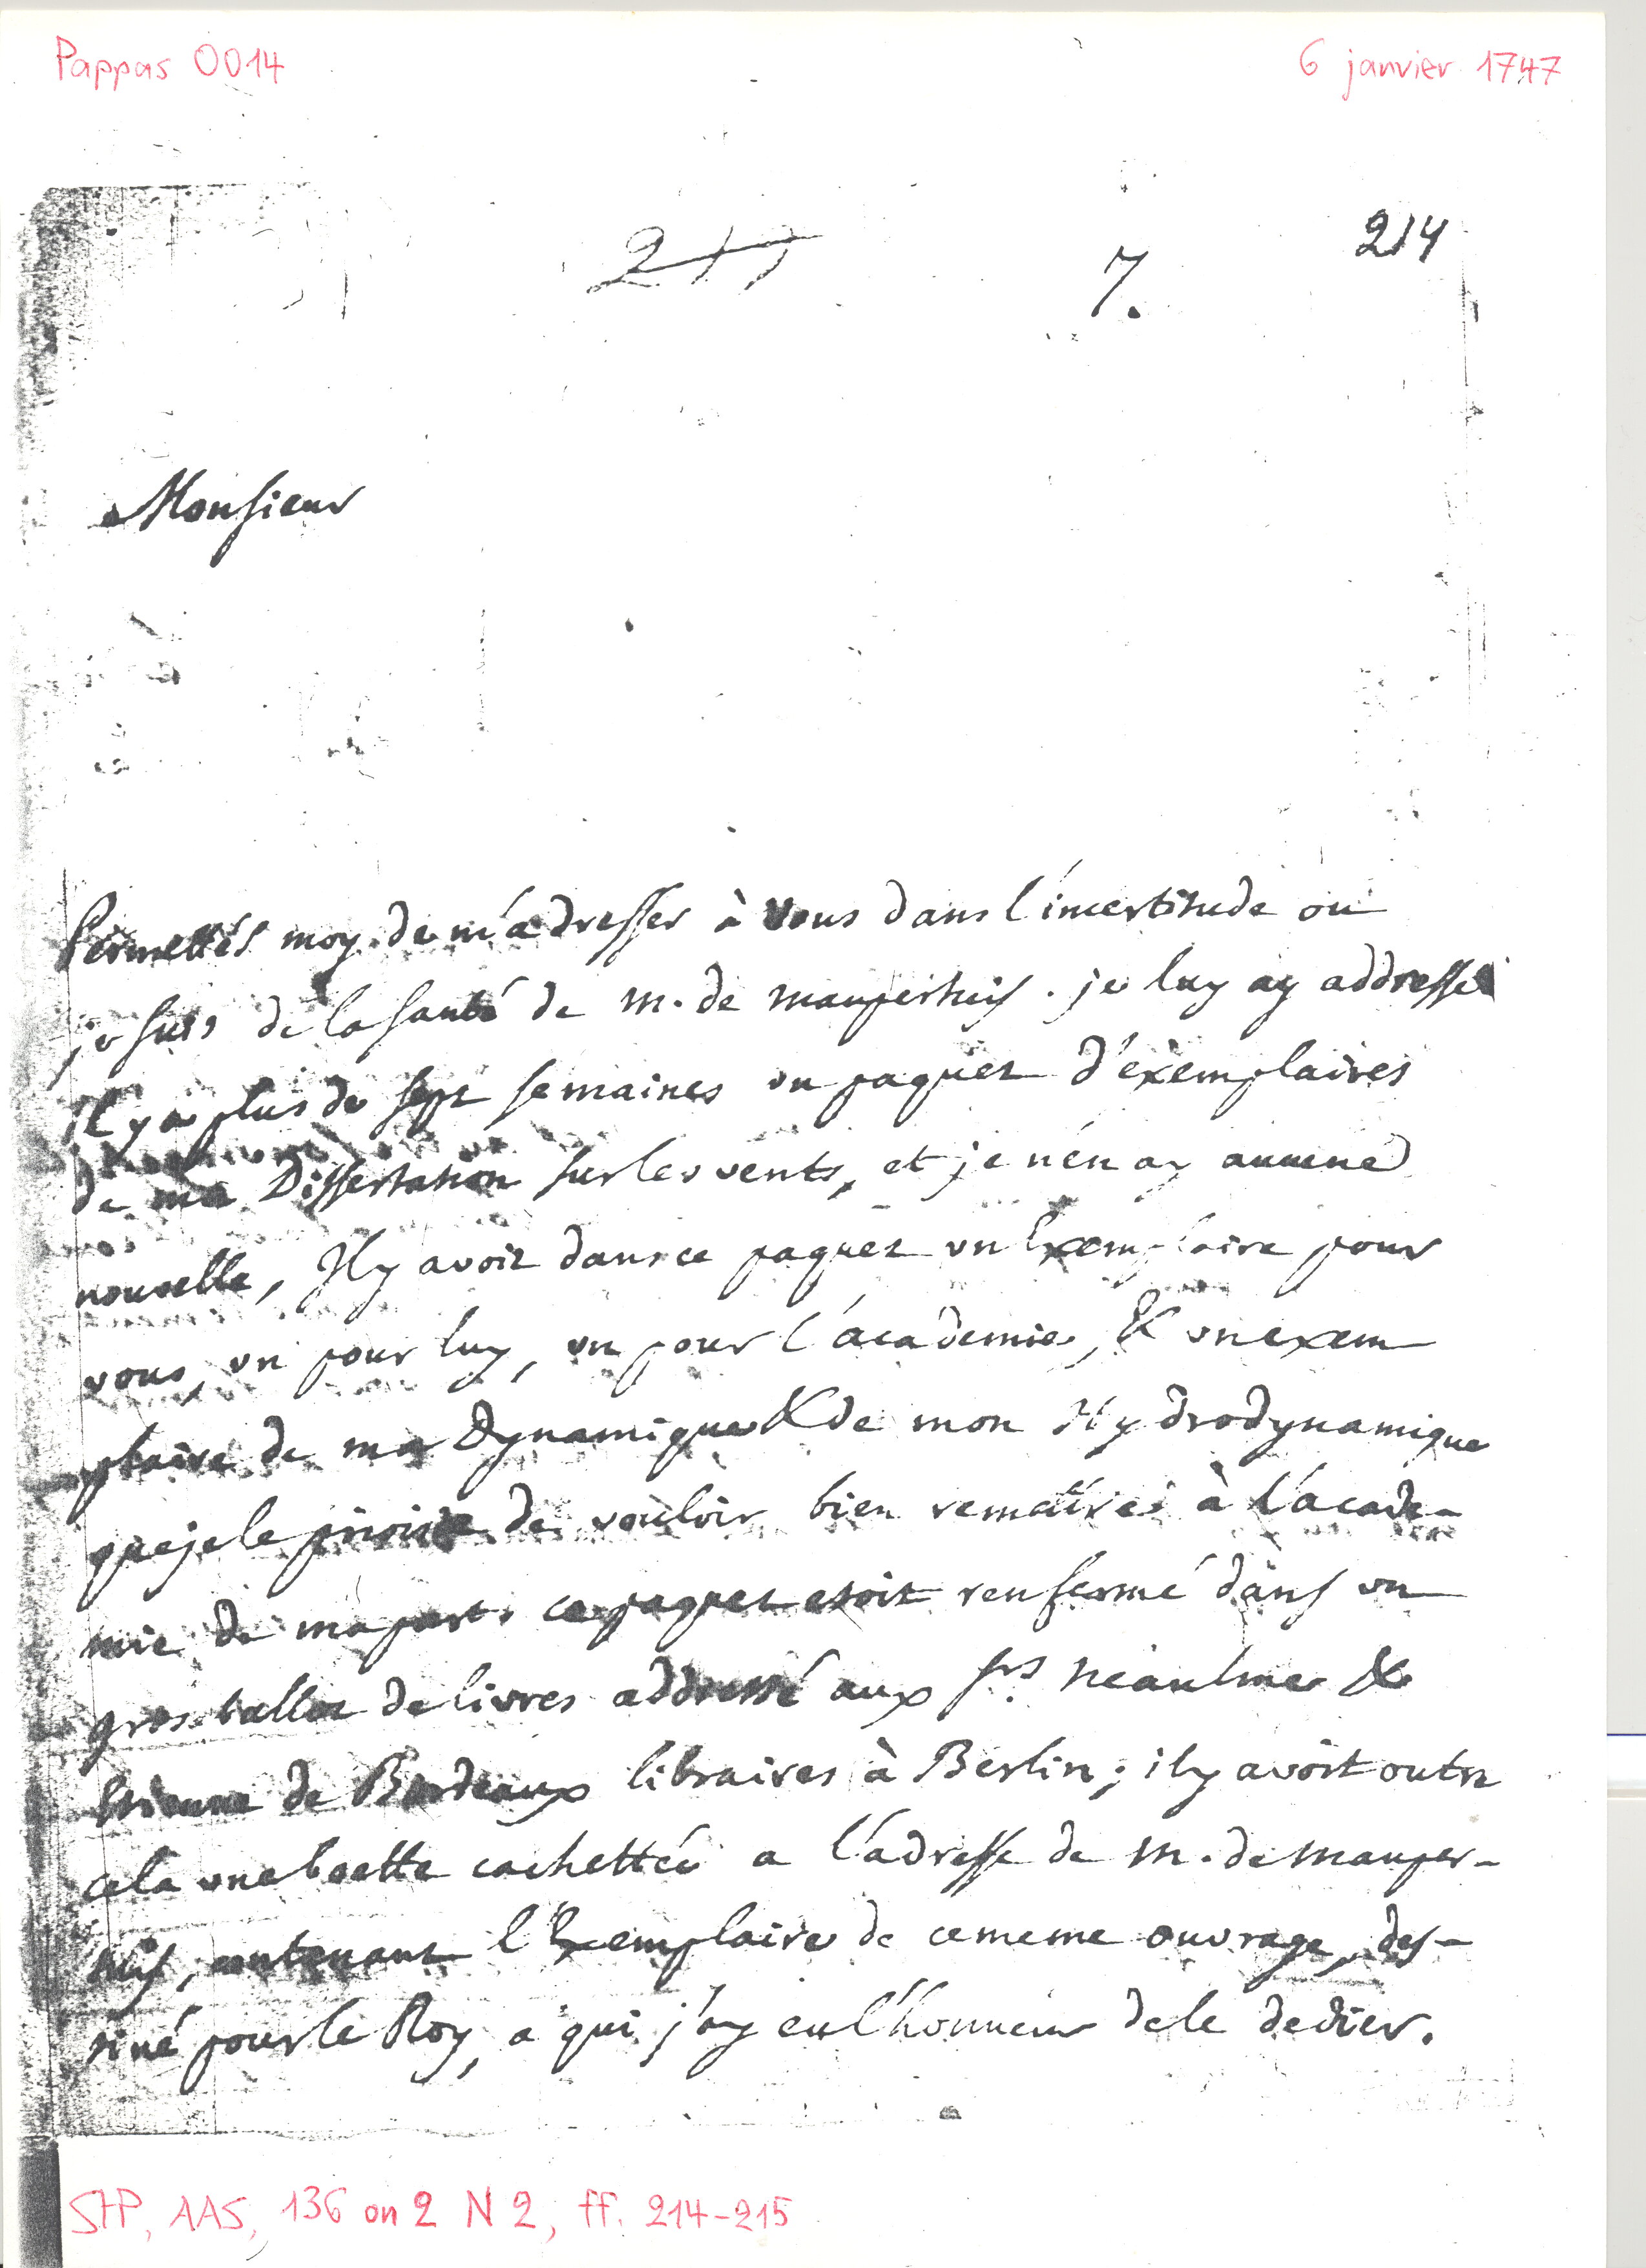 Pappas 0014
6 janvier 1747
214
7.
Monsieur
Permettés moy de m'adresser à vous dans l'incertitude où
je suis de la santé de m. de maupertuis. je luy ay addressé
il y a plus de sept semaines un paquet d'éxemplaires
de ma Dissertation sur les vents, et je n'en ay aucune
nouvelle, Il y avoit dans ce paquet un Exemplaire pour
vous, un pour luy, un pour l'academie, & un exem
plaire de ma Dynamique & de mon Hydrodynamique
que je le priois de vouloir bien remettre à l'acade-
mie de ma part. ce paquet etoit renfermé dans un
gros ballot de livres addressé aux Srs neaulme &
Etienne de Bordeaux libraires à Berlin; il y avoit outre
cela une boette cachettée a l'adresse de m. de mauper-
tuis, contenant l'Exemplaire de ce meme ouvrage, des-
tiné pour le Roy, a qui j'ay eu l'honneur de le dedier.
StP, AAS, 136 on 2 N 2, ff. 214-215